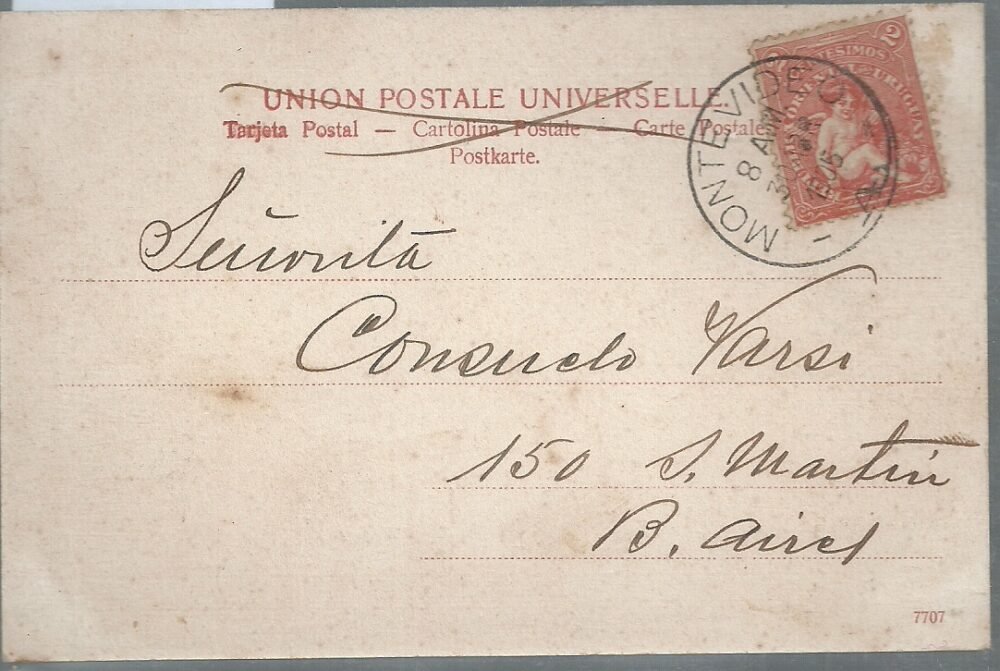 UNION POSTALE UNIVERSELLE.
Tarjeta Postal — Cartolina Postale — Carte Postale
Postkarte.
2
CENTESIMOS
URUGUAY
MONTEVIDEO
8 AM
Señorita
Consuelo Varsi
150 S. Martin
B. Aires
7707